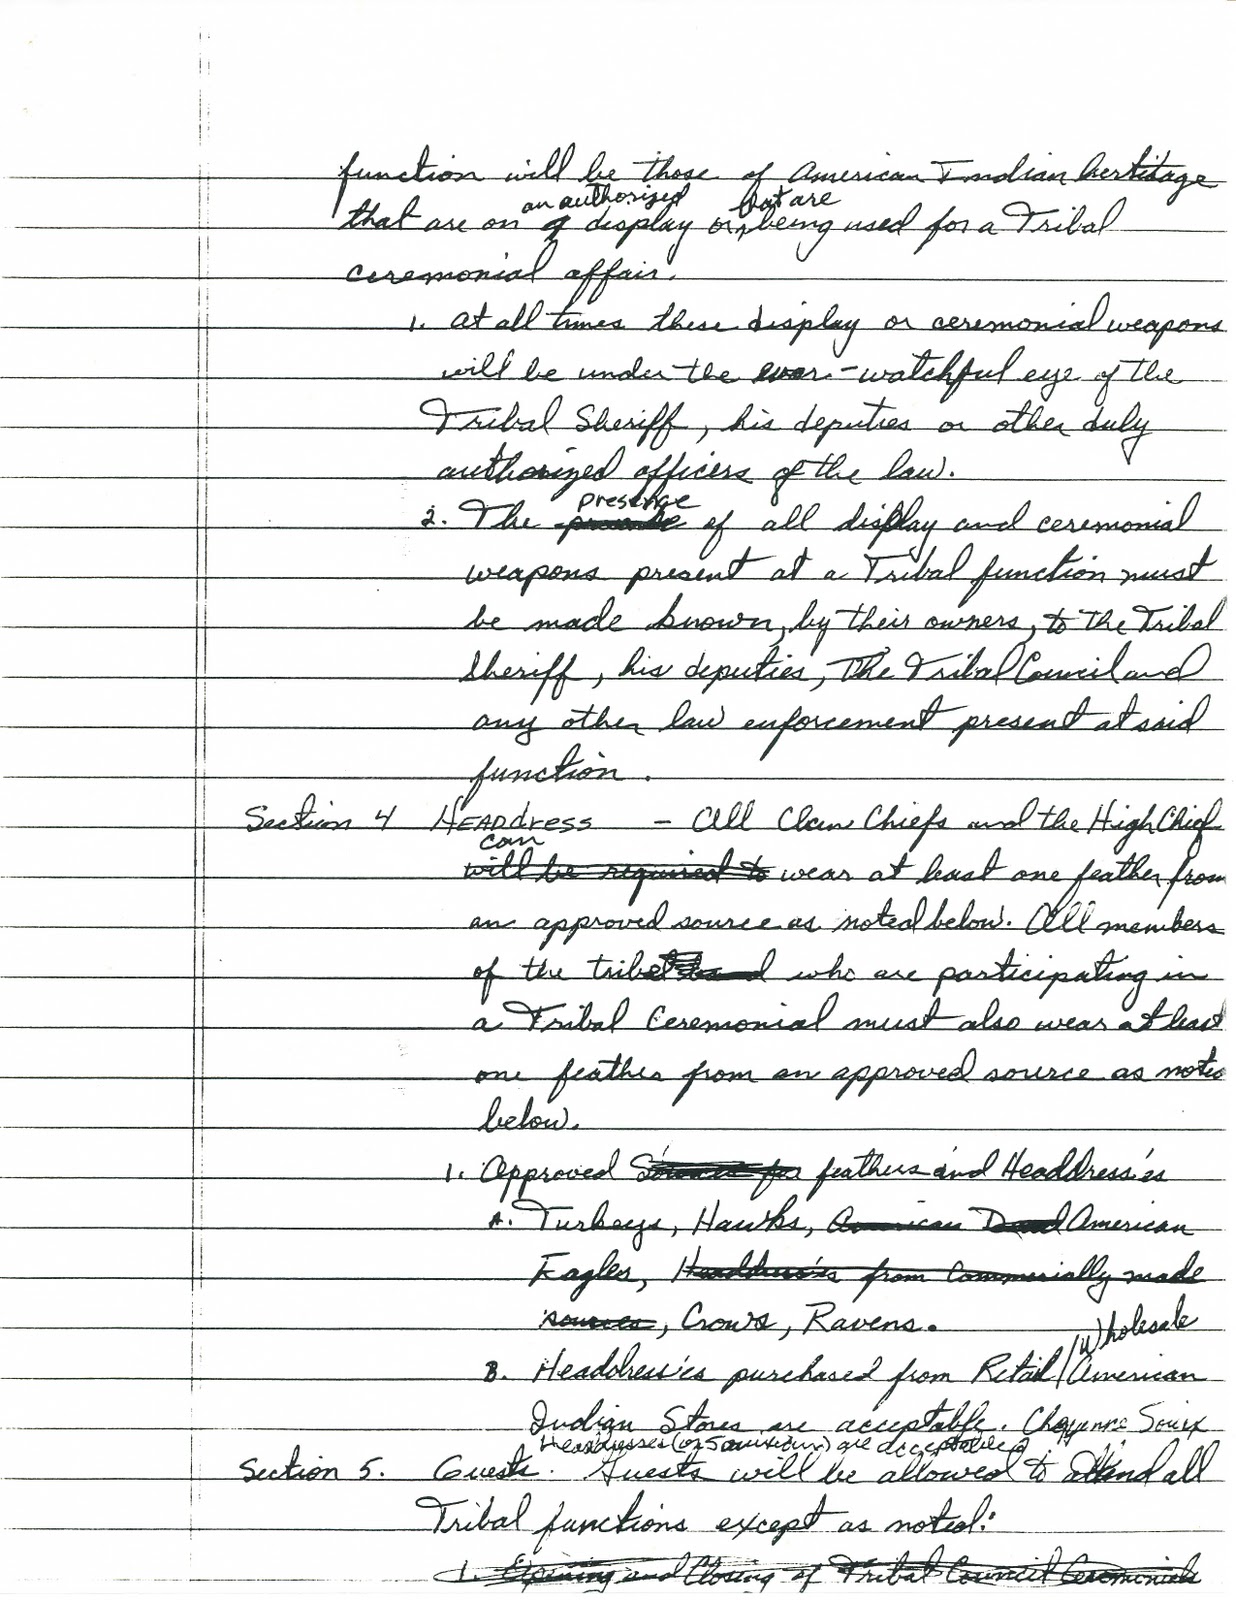 function will be those of American Indian hertitage
an authorized but are
that are on a display or being used for a Tribal
ceremonial affair.
1. At all times these display or ceremonial weapons
will be under the ever-watchful eye of the
Tribal Sheriff, his deputies or other duly
authorized officers of the law.
presence
2. The of all display and ceremonial
weapons present at a Tribal function must
be made known, by their owners, to the Tribal
Sheriff, his deputies, The Tribal Council and
any other law enforcement present at said
function.
Section 4 HEADdress - All Clan Chiefs and the High Chief
can
will be required to wear at least one feather from
an approved source as noted below. All members
of the tribe who are participating in
a Tribal Ceremonial must also wear at least
one feather from an approved source as noted
below.
1. Approved Sources for feathers and Headdress'es
A. Turkeys, Hawks, American American
Eagles, Headdress'es from Commercially made
sources, Crows, Ravens.
Wholesale
B. Headdress'es purchased from Retail/American
Indian Stores are acceptable. Cheyenne Souix
Headdresses (or) are acceptable
Section 5. Guests. Guests will be allowed to attend all
Tribal functions except as noted:
1. Opening and Closing of Tribal Council Ceremonials